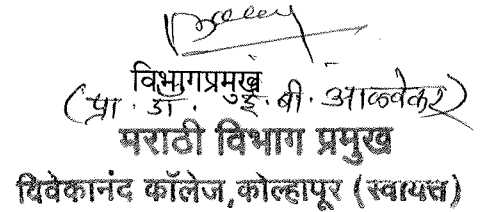 विभागप्रमुख
(प्रा. डॉ. ई. बी. आळवेकर)
मराठी विभाग प्रमुख
विवेकानंद कॉलेज,कोल्हापूर (स्वायत्त)